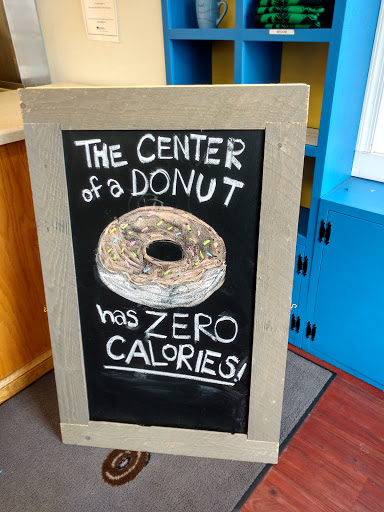 THE CENTER
of a DONUT
has ZERO
CALORIES!